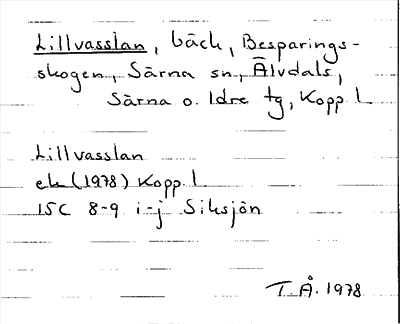 Lillvasslan, bäck, Besparings-
skogen, Särna sn, Älvdals,
Särna o. Idre tg, Kopp l
Lillvasslan
ek (1978) Kopp l
15C 8-9 i-j Siksjön
T. Å. 1978